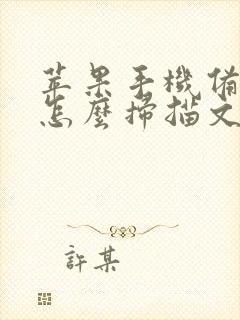 苹果手機備
怎麼掃描文
許某